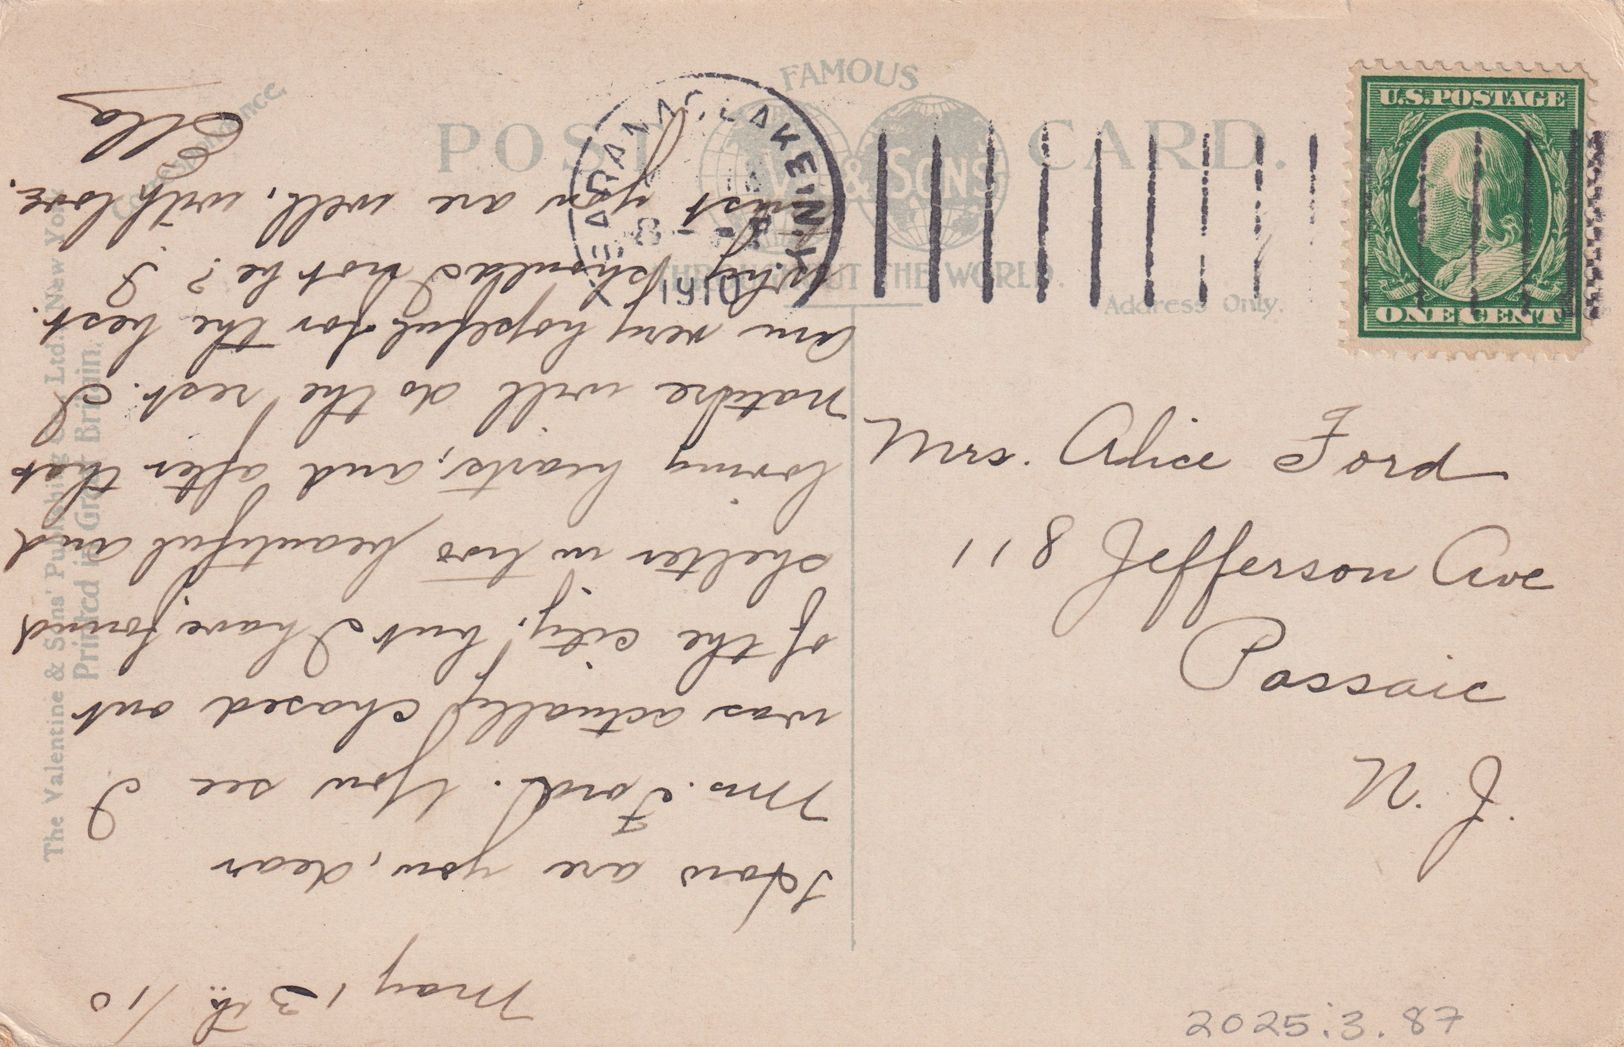 FAMOUS
POST CARD.
V & SONS
THROUGHOUT THE WORLD.
Address Only.
Correspondence.
SARANAC LAKE, N.Y.
1910
U.S. POSTAGE
ONE CENT
May 13th /10
How are you, dear
Mrs. Ford. You see I
was actually chased out
of the city, but I have found
shelter in two beautiful and
loving hearts, and after that
nature will do the rest. I
am very hopeful for the best.
why should I not be? I
trust you are well, with love.
Ella
Mrs. Alice Ford
118 Jefferson Ave
Passaic
N. J.
The Valentine & Sons' Publishing Co. Ltd. New York
Printed in Great Britain.
2025.3.87